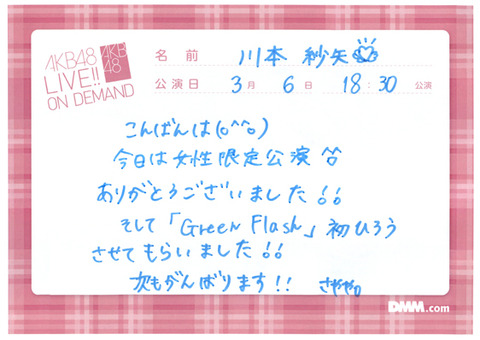 AKB48
LIVE!!
ON DEMAND
AKB
48
名前 川本 紗矢
公演日 3月 6日 18:30 公演
こんばんは(o^^o)
今日は女性限定公演^o^
ありがとうございました!!
そして「Green Flash」初ひろう
させてもらいました!!
次もがんばります!! さやや。
DMM.com